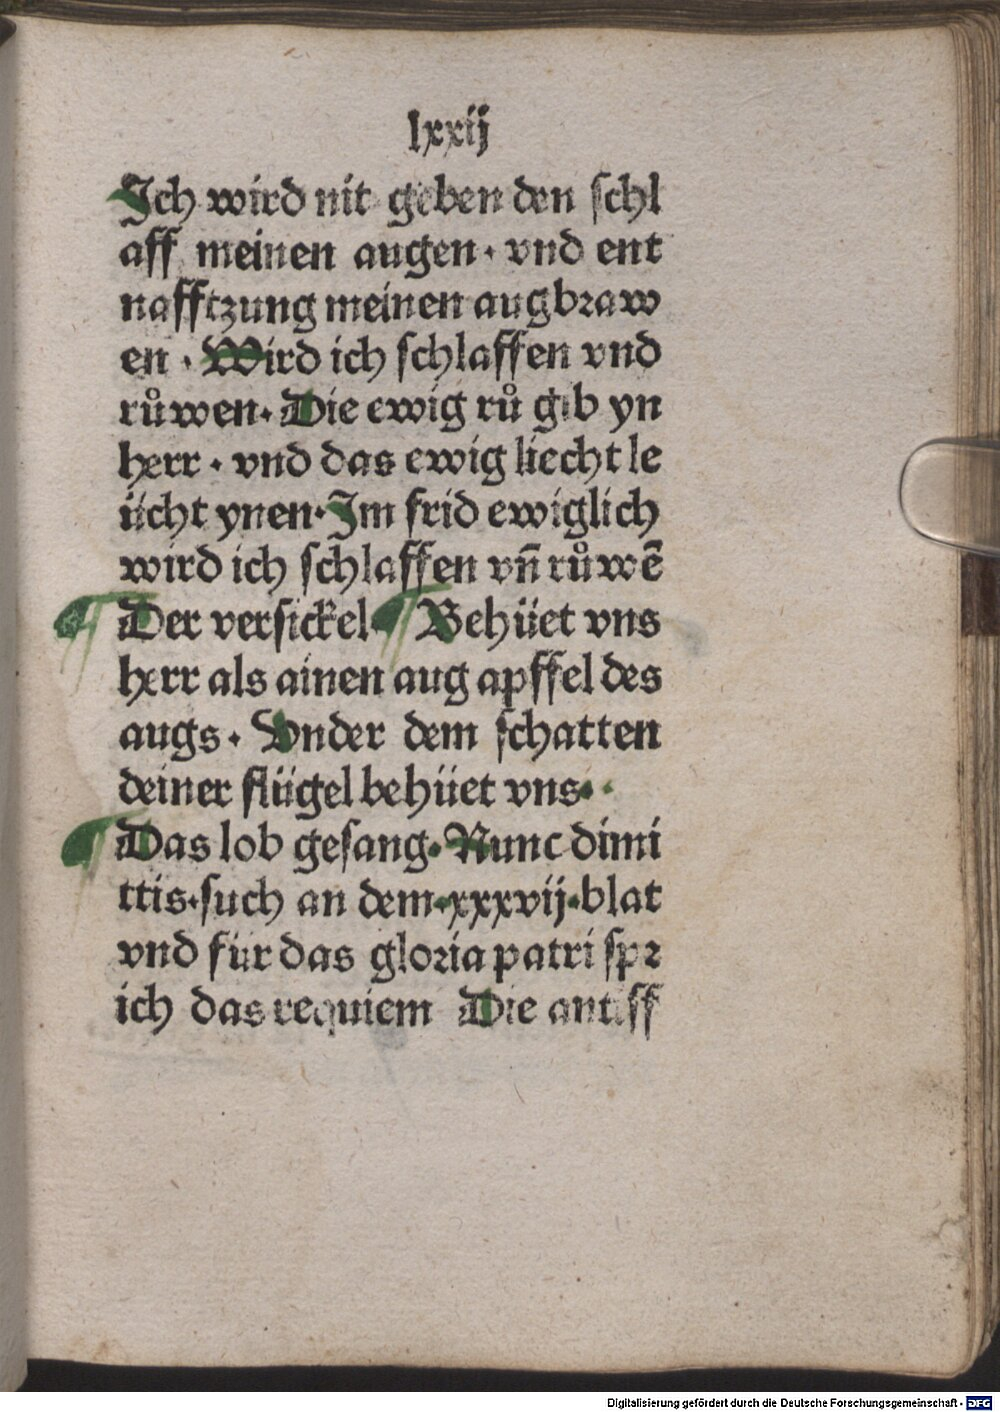 lxxij
Ich wird nit geben den ſchl
aff meinen augen · vnd ent
nafftzung meinen augbꝛaw
en · Wird ich ſchlaffen vnd
růwen · Die ewig rů gib yn
herr · vnd das ewig liecht le
ücht ynen · Im frid ewiglich
wird ich ſchlaffen vn̄ růwē
¶ Der verſickel ¶ Behüet vns
herr als ainen aug apffel des
augs · Vnder dem ſchatten
deiner flügel behüet vns ·
¶ Das lob geſang · Nunc dimi
ttis · ſuch an dem · xxxvij · blat
vnd für das gloꝛia patri ſpꝛ
ich das requiem Die antiff
Digitalisierung gefördert durch die Deutsche Forschungsgemeinschaft - DFG